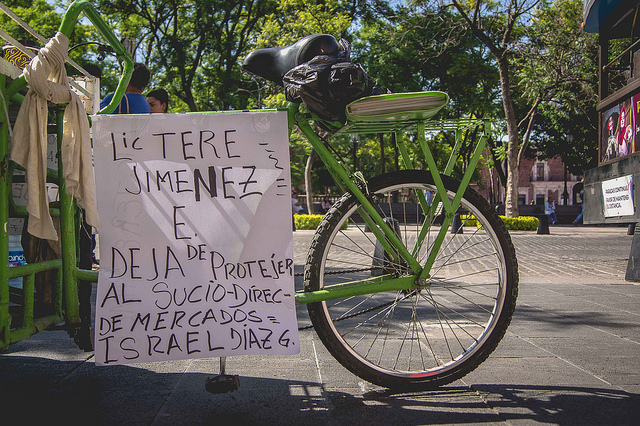 Lic TERE
JIMENEZ
E.
DEJA DE PROTEJER
AL SUCIO-DIREC-
DE MERCADOS=
ISRAEL DÍAZ G.